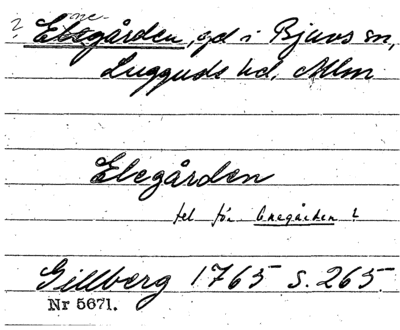 ? ne-
Elegården, gd i Bjuvs sn,
Luggude hd, Mlm
Elegården
fel för Enegården ?
Gillberg 1765 s. 265.
Nr 5671.